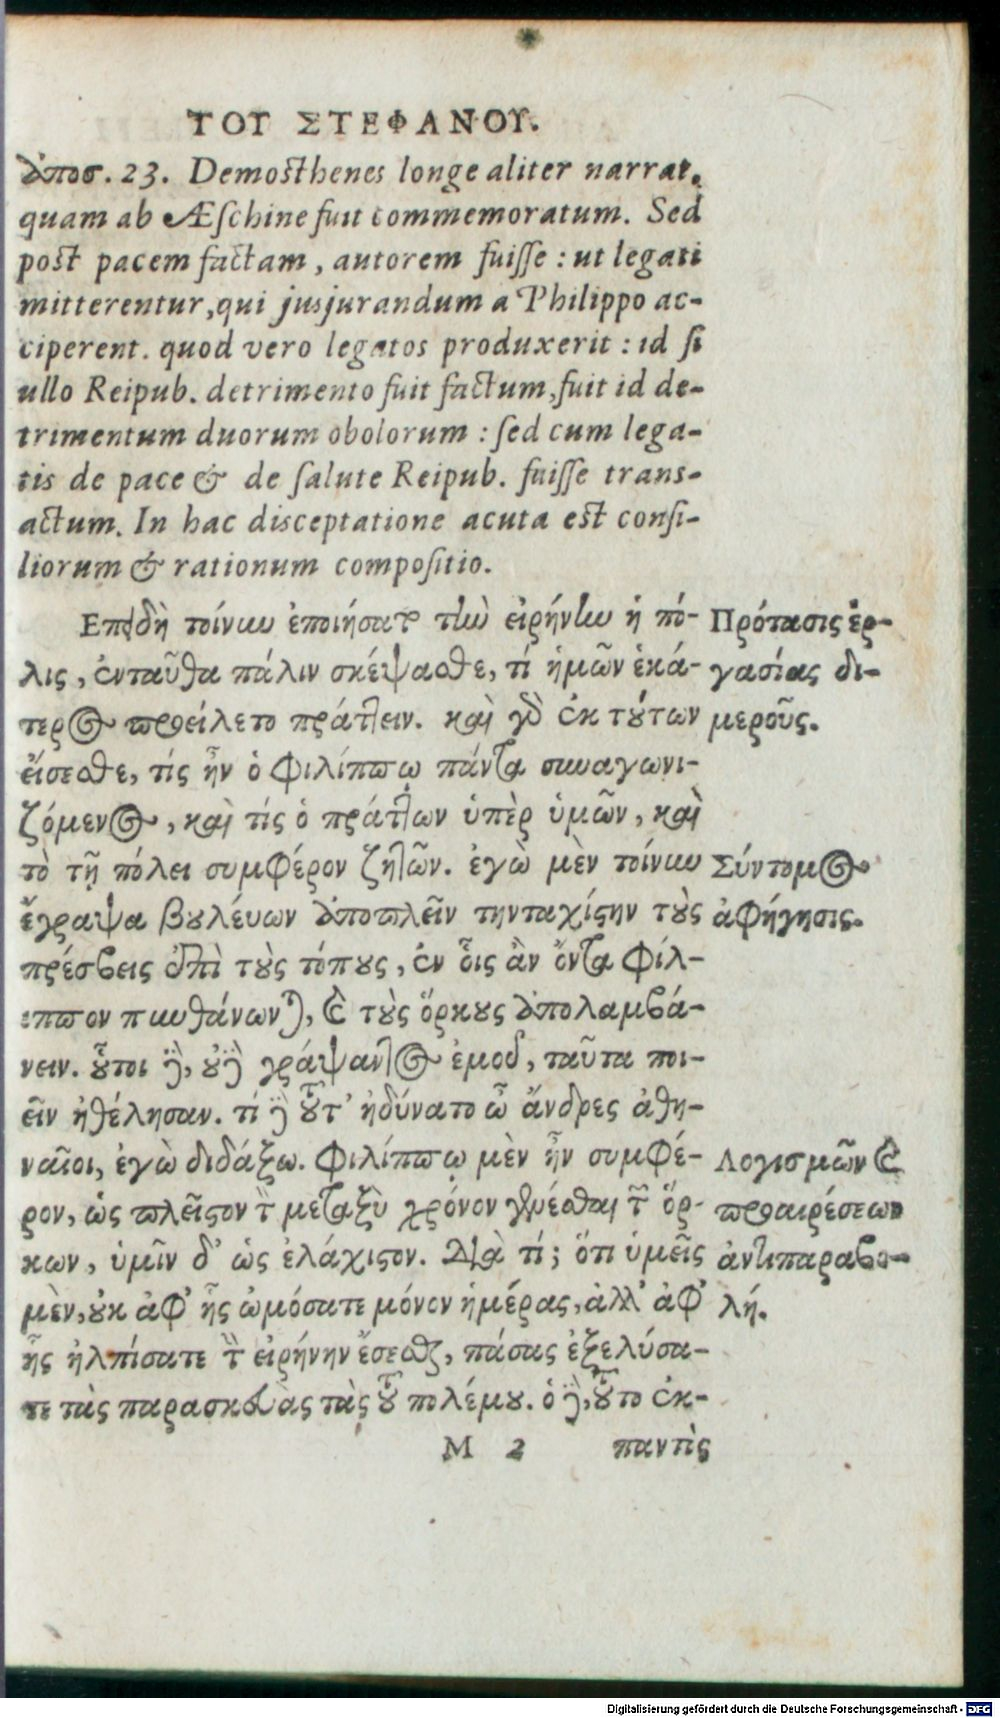 ΤΟΥ ΣΤΕΦΑΝΟΥ.
ἀποσ. 23. Demosthenes longe aliter narrat,
quam ab Æschine fuit commemoratum. Sed
post pacem factam, autorem fuisse: ut legati
mitterentur, qui jusjurandum a Philippo ac-
ciperent. quod vero legatos produxerit: id si
ullo Reipub. detrimento fuit factum, fuit id de-
trimentum duorum obolorum: sed cum lega-
tis de pace & de salute Reipub. fuisse trans-
actum. In hac disceptatione acuta est consi-
liorum & rationum compositio.
Επειδὴ τοίνυν ἐποιήσατο τὴν εἰρήνην ἡ πό-
λις, ἐνταῦθα πάλιν σκέψασθε, τί ἡμῶν ἑκά-
τερος προείλετο πράττειν. καὶ γὰρ ἐκ τούτων
εἴσεσθε, τίς ἦν ὁ Φιλίππῳ πάντα συναγωνι-
ζόμενος, καὶ τίς ὁ πράττων ὑπὲρ ὑμῶν, καὶ
τὸ τῇ πόλει συμφέρον ζητῶν. ἐγὼ μὲν τοίνυν
ἔγραψα βουλεύων ἀποπλεῖν τηνταχίστην τοὺς
πρέσβεις ἐπὶ τοὺς τόπους, ἐν οἷς ἂν ὄντα Φίλ-
ιππον πυνθάνωνται, καὶ τοὺς ὅρκους ἀπολαμβά-
νειν. οὗτοι δὲ, οὐδὲ γράψαντος ἐμοῦ, ταῦτα ποι-
εῖν ἠθέλησαν. τί δὲ τοῦτ' ἠδύνατο ὦ ἄνδρες ἀθη-
ναῖοι, ἐγὼ διδάξω. Φιλίππῳ μὲν ἦν συμφέ-
ρον, ὡς πλεῖστον τὸν μεταξὺ χρόνον γενέσθαι τῶν ὅρ-
κων, ὑμῖν δ' ὡς ἐλάχιστον. Διὰ τί; ὅτι ὑμεῖς
μὲν, οὐκ ἀφ' ἧς ὠμόσατε μόνον ἡμέρας, ἀλλ' ἀφ'
ἧς ἠλπίσατε τὴν εἰρήνην ἔσεσθαι, πάσας ἐξελύσα-
τε τὰς παρασκευὰς τὰς τοῦ πολέμου. ὁ δὲ, τοῦτο ἐκ-
M 2 παντὸς
Πρότασις ἐρ-
γασίας δι-
μεροῦς.
Σύντομος
ἀφήγησις.
Λογισμῶν καὶ
προαιρέσεων
ἀντιπαραβο-
λή.
Digitalisierung gefördert durch die Deutsche Forschungsgemeinschaft - DFG